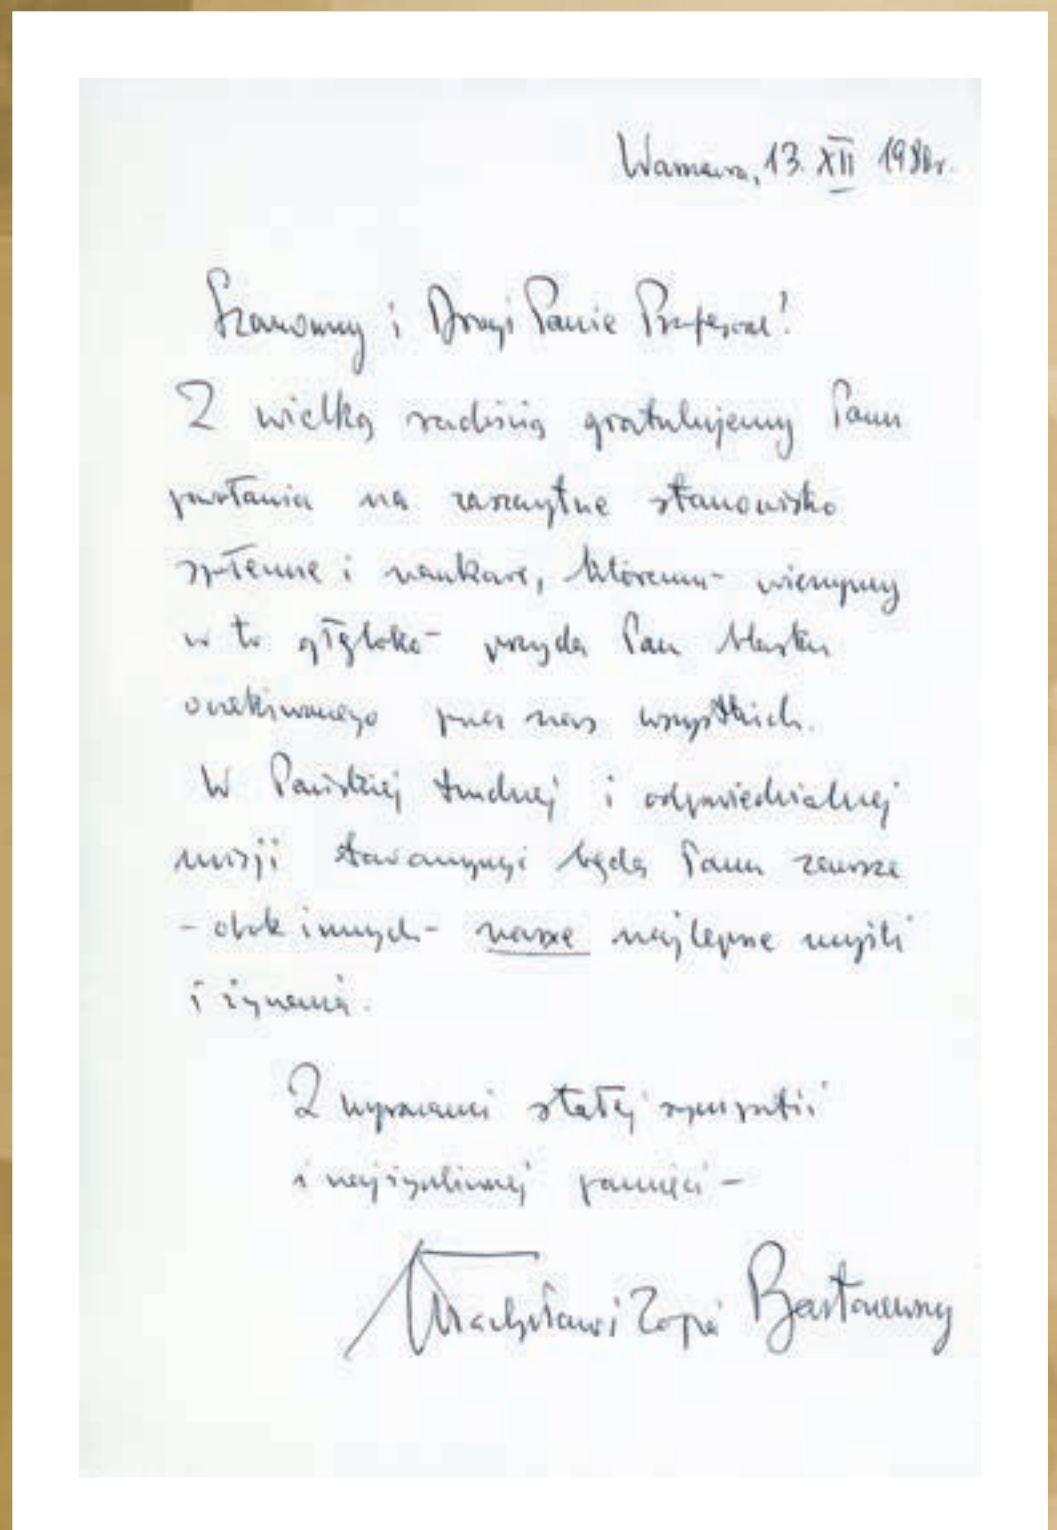 Warszawa, 13. XII 1980r.
Szanowny i Drogi Panie Profesorze!
Z wielką radością gratulujemy Panu
powołania na zaszczytne stanowisko
społeczne i naukowe, któremu - wierzymy
w to głęboko - przyda Pan blasku
oczekiwanego przez nas wszystkich.
W Pańskiej trudnej i odpowiedzialnej
misji towarzyszyć będą Panu zawsze
- obok innych - nasze najlepsze myśli
i życzenia.
Z wyrazami stałej sympatii
i najżyczliwszej pamięci -
Władysław i Zofia Bartoszewscy